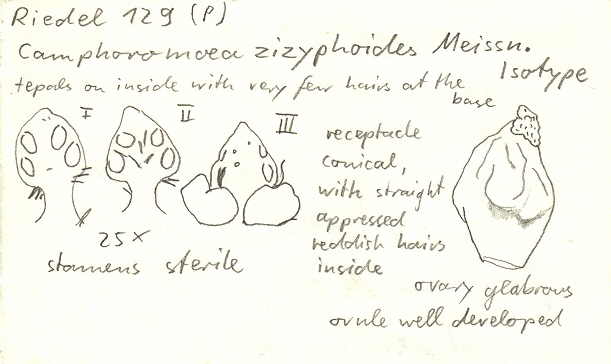 Riedel 129 (P)
Camphoromoea zizyphoides Meissn.
Isotype
tepals on inside with very few hairs at the
base
I II III
receptacle
conical,
with straight
appressed
reddish hairs
inside
25 x
stamens sterile
ovary glabrous
ovule well developed